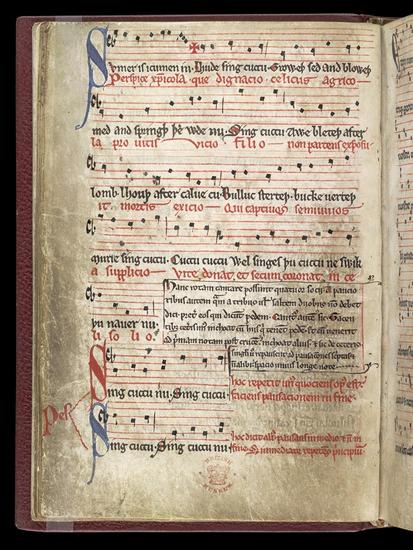 Sumer is icumen in · Lhude sing cuccu · Groweþ sed and bloweþ
Perspice xp̄icola · que dignacio · celicus agrico-
med and springþ þe wde nu · Sing cuccu Awe bleteþ after
la pro uitis vicio filio non parcens exposu-
lomb lhouþ after calue cu · Bulluc sterteþ · bucke uerteþ
it · mortis exicio Qui captiuos semiuiuos
murie sing cuccu · Cuccu cuccu Wel singes þu cuccu ne swik
a supplicio Vite donat · et secum coronat · in ce-
þu nauer nu ·
li solio ·
Hanc rotam cantare possunt quatuor socij · A paucio
ribus autem quam a tribus uel saltem duobus non debet
dici preter eos qui dicunt pedem · Canitur autem sic · Tacen
tibus ceteris unus inchoat cum hiis qui tenent pedem · Et cum uenerit
ad primam notam post crucem · inchoat alius · et sic de ceteris ·
singuli uero repausent ad pausaciones scriptas
non alibi · spacio unius longe note ·
Sing cuccu nu · Sing cuccu ·
hoc repetit unus quociens opus est ·
faciens pausacionem in fine ·
Pes
Sing cuccu · Sing cuccu nu
hoc dicit alius · pausans in medio · et non in
fine · Set immediate repetens principium ·